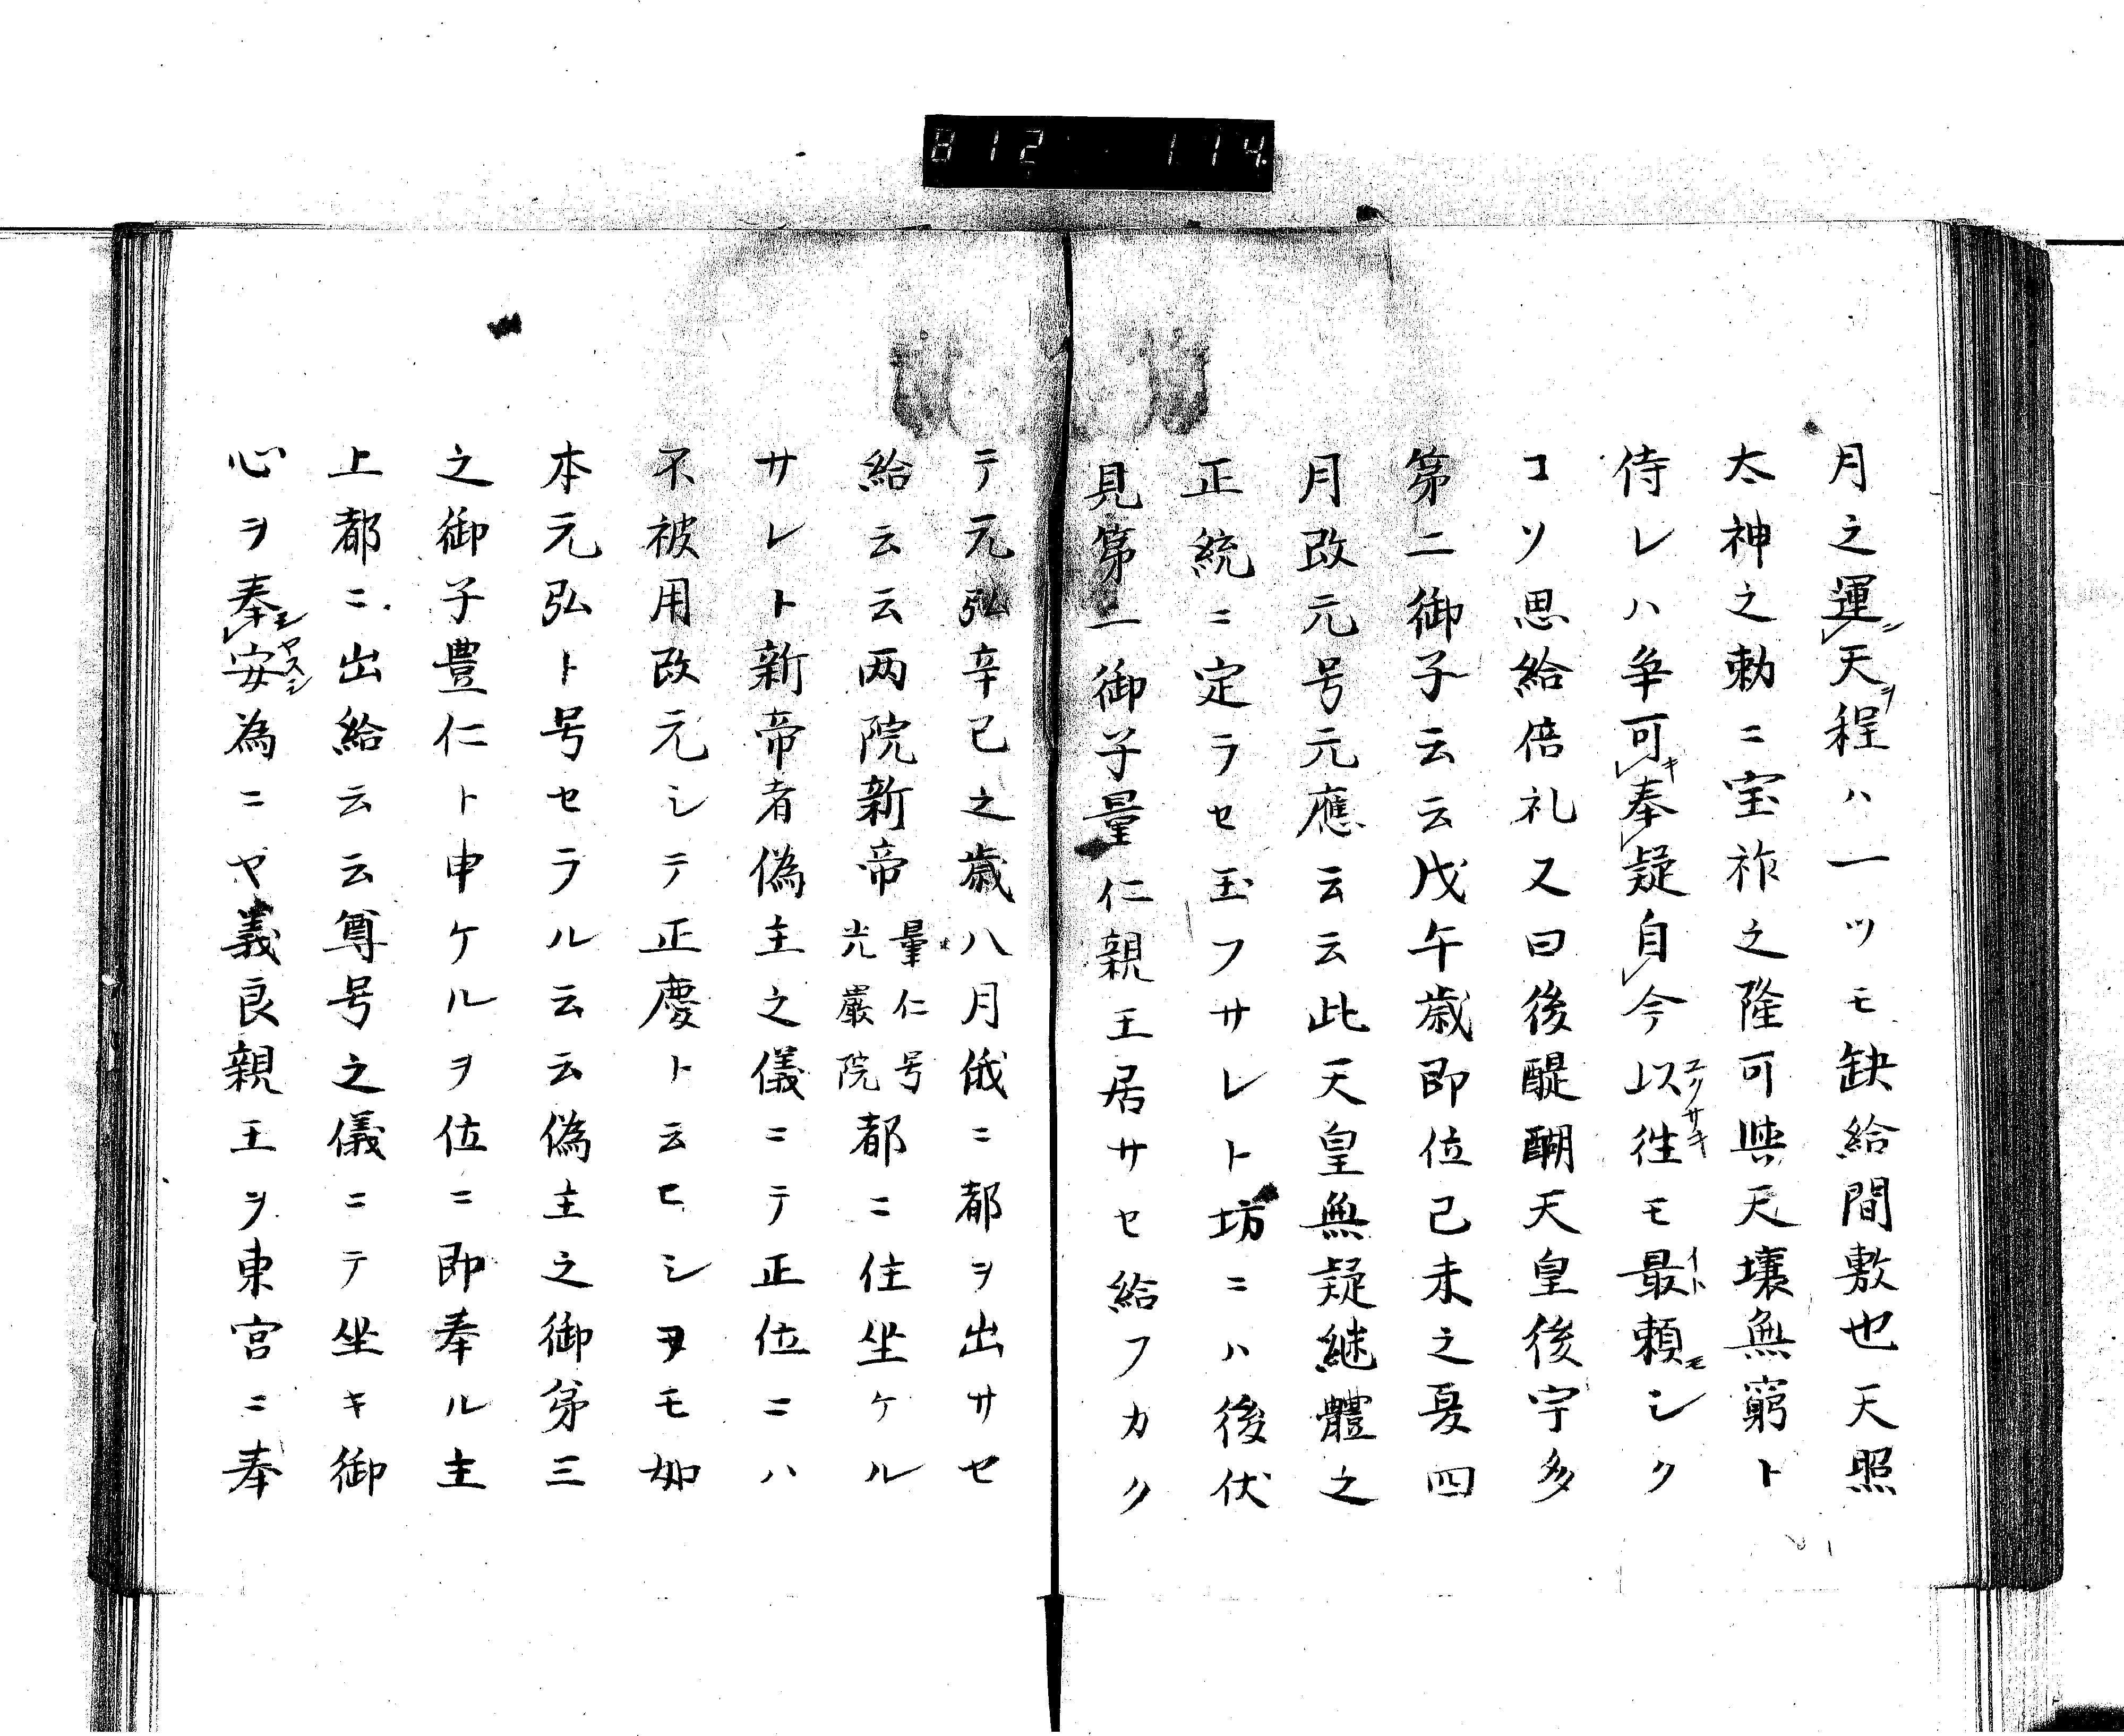 812 114.
月之運天程ハ一ツモ缺給間敷也天照
太神之勅ニ宝祚之隆可與天壤無窮ト
侍レハ争可奉疑自今以徃モ最頼モシク
コソ思給倍礼又曰後醍醐天皇後宇多
第二御子云云戊午歳即位己未之夏四
月改元号元應云云此天皇無疑継體之
正統ニ定ラセ玉フサレト坊ニハ後伏
見第一御子量仁親王居サセ給フカク
テ元弘辛已之歳八月俄ニ都ヲ出サセ
給云云两院新帝量仁号光嚴院都ニ住坐ケル
サレト新帝者偽主之儀ニテ正位ニハ
不被用改元シテ正慶ト云ヒシヲモ如
本元弘ト号セラル云云偽主之御弟三
之御子豊仁ト申ケルヲ位ニ即奉ル主
上都ニ出給云云尊号之儀ニテ坐キ御
心ヲ奉安為ニヤ義良親王ヲ東宮ニ奉